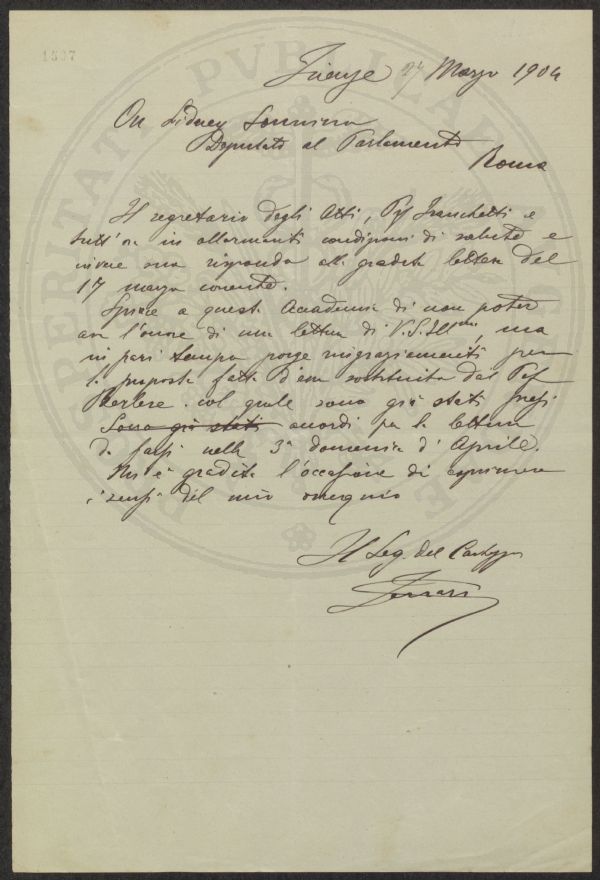 1507
Firenze 27 Marzo 1904
On Sidney Sonnino
Deputato al Parlamento
Roma
Il segretario degli Atti, Prof Franchetti e
tutt'ora in allarmanti condizioni di salute e
invece sua rispondo alla gradita lettera del
17 marzo corrente.
Spiace a questa Accademia di non poter
aver l'onore di una lettura di V. S. Ill.ma, ma
in pari tempo porge ringraziamenti per
la proposta fatta d'esser sostituita dal Prof
col quale sono già stati presi
Sono già stati accordi per la lettura
da farsi nella 3a domenica di Aprile.
Mi è gradita l'occasione di esprimere
i sensi del mio ossequio
Il Seg. del
Ferrari
PVBBLICA